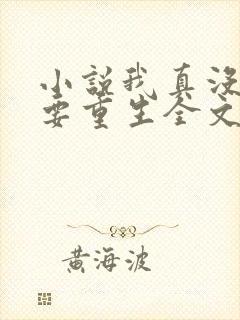 小説我真沒
要重生全文
黄海波